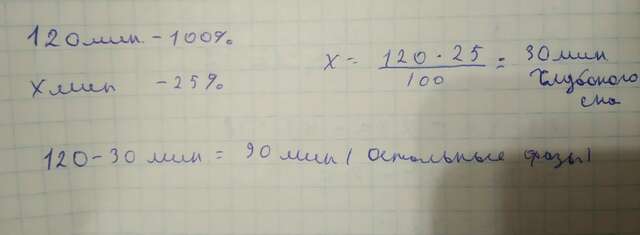 120 мин - 100%
X мин - 25%
X = 120 · 25 / 100 = 30 мин
глубокого
сна
120 - 30 мин = 90 мин ( остальные фазы )